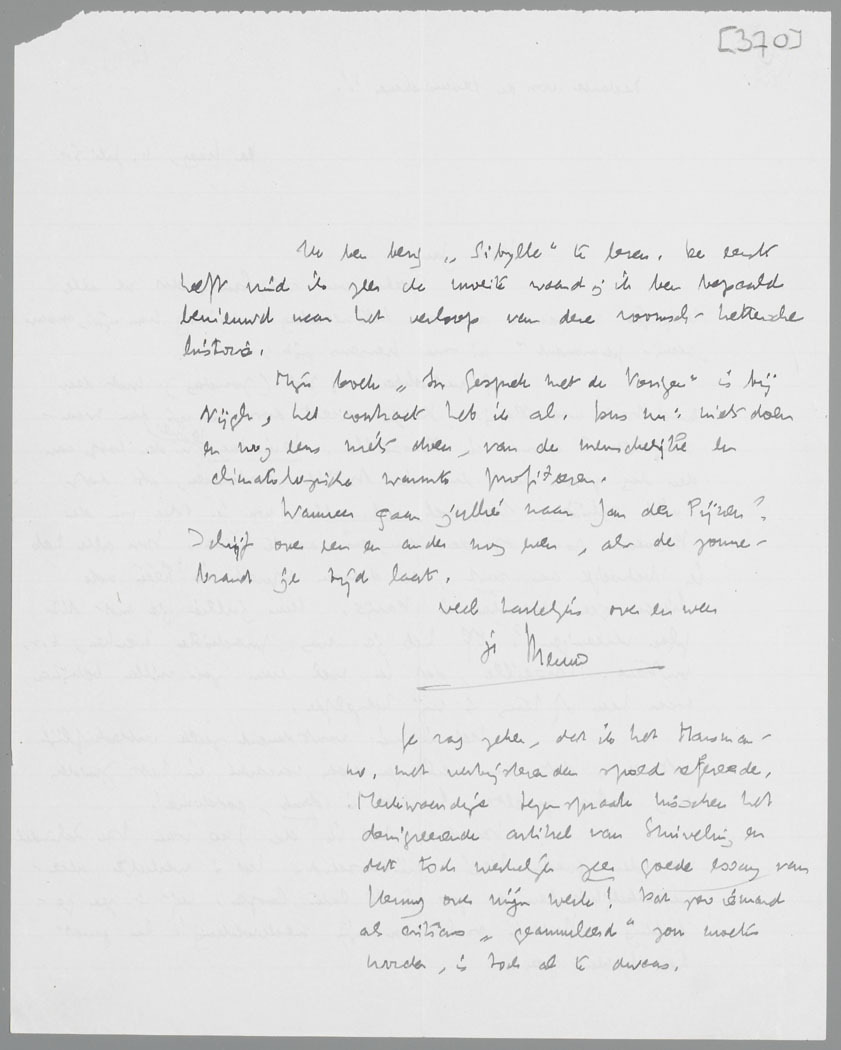 [370]
Ik ben bezig „Sibylle" te lezen. De eerste
helft vind ik zeer de moeite waard; ik ben bepaald
benieuwd naar het verloop van deze roomsch-kettersche
historie.
Mijn boek „In Gesprek met de Vorigen" is bij
Nijgh, het contract heb ik al. Dus nu: niets doen
en nog eens niets doen, van de menschelijke en
climatologische warmte profiteeren.
Wanneer gaan jullie naar Jan der Pijnen?
Schrijf over een en ander nog even, als de zonne-
brand je tijd laat.
veel hartelijks over en weer
je Menno
Je zag zeker, dat ik het Marsman-
nr. met verbijsterenden spoed refereerde.
Merkwaardige tegenspraak tusschen het
denigreerende artikel van Stuiveling en
dat toch werkelijk zeer goede essay van
over mijn werk! Dat zoo iemand
als criticus „geannuleerd" zou moeten
worden, is toch al te dwaas.